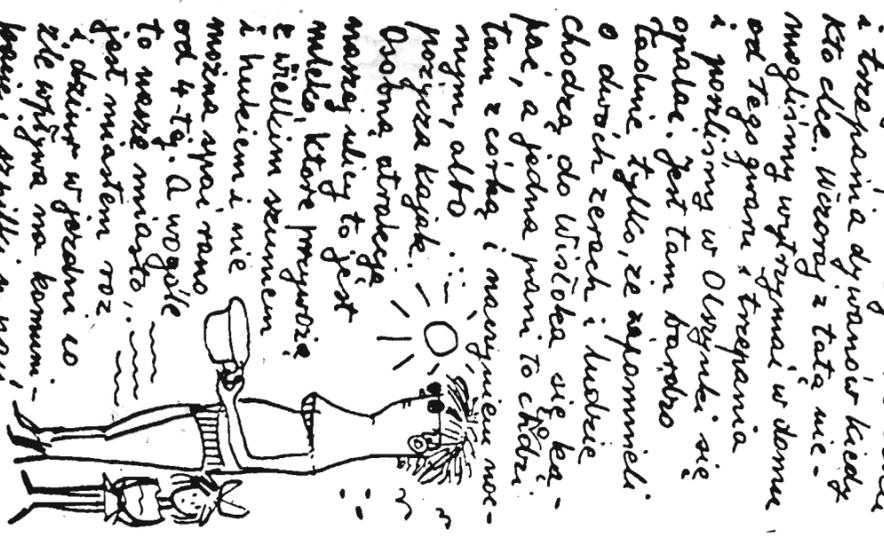 i trzepania dywanów kiedy
kto chce. Wczoraj z tatą nie-
mogliśmy wytrzymać w domu
od tego gwaru i trzepania
i poszliśmy w Olszynki się
opalać. Jest tam bardzo
ładnie tylko, że zapomnieli
o dwóch zerach i ludzie
chodzą do Wisłoka się ką-
pać, a jedna pani to chodzi
tam z córką i naczyniem noc-
nym, albo
pożycza kajak.
Osobną atrakcją
naszej ulicy to jest
mleko, które przywożą
z wielkim szumem
i hukiem i nie
można spać rano
od 4-tej. A wogóle
to nasze miasto,
jest miastem róż
i dziur w jezdni co
źle wpływa na komuni-